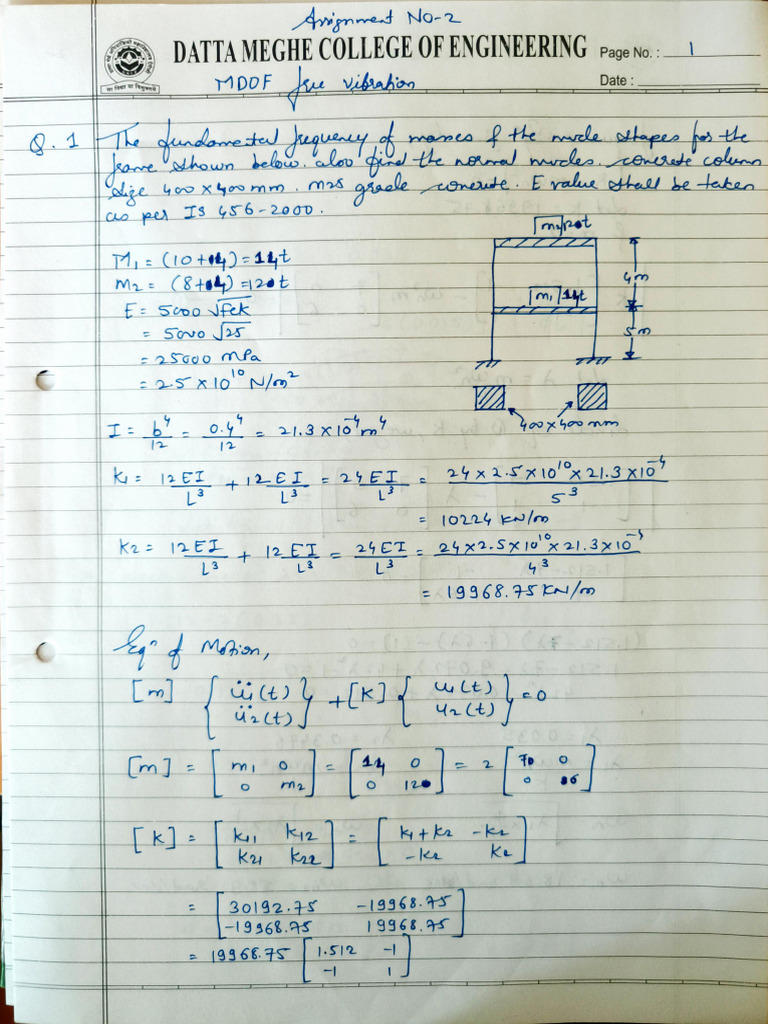 Assignment No-2
DATTA MEGHE COLLEGE OF ENGINEERING
Page No. : 1
Date :
MDOF free vibration
Q.1 The fundamental frequency of masses & the mode shapes for the
frame shown below. also find the normal modes. concrete column
size 400 x 400 mm. M25 grade concrete. E value shall be taken
as per IS 456-2000.
m2 120t
4m
m1 14t
5m
400 x 400 mm
M1 = (10+14) = 14t
m2 = (8+14) = 120t
E = 5000 √fck
= 5000 √25
= 25000 MPa
= 2.5 x 10^10 N/m²
I = b^4/12 = 0.4^4/12 = 21.3 x 10^-4 m^4
K1 = 12EI/L³ + 12EI/L³ = 24EI/L³ = 24 x 2.5 x 10^10 x 21.3 x 10^-4 / 5³
= 10224 KN/m
K2 = 12EI/L³ + 12EI/L³ = 24EI/L³ = 24 x 2.5 x 10^10 x 21.3 x 10^-4 / 4³
= 19968.75 KN/m
Eqn of Motion,
[m] { ü1(t) ü2(t) } + [K] { u1(t) u2(t) } = 0
[m] = [ m1 0 0 m2 ] = [ 14 0 0 120 ] = 2 [ 70 0 0 6 ]
[K] = [ K11 K12 K21 K22 ] = [ K1+K2 -K2 -K2 K2 ]
= [ 30192.75 -19968.75 -19968.75 19968.75 ]
= 19968.75 [ 1.512 -1 -1 1 ]